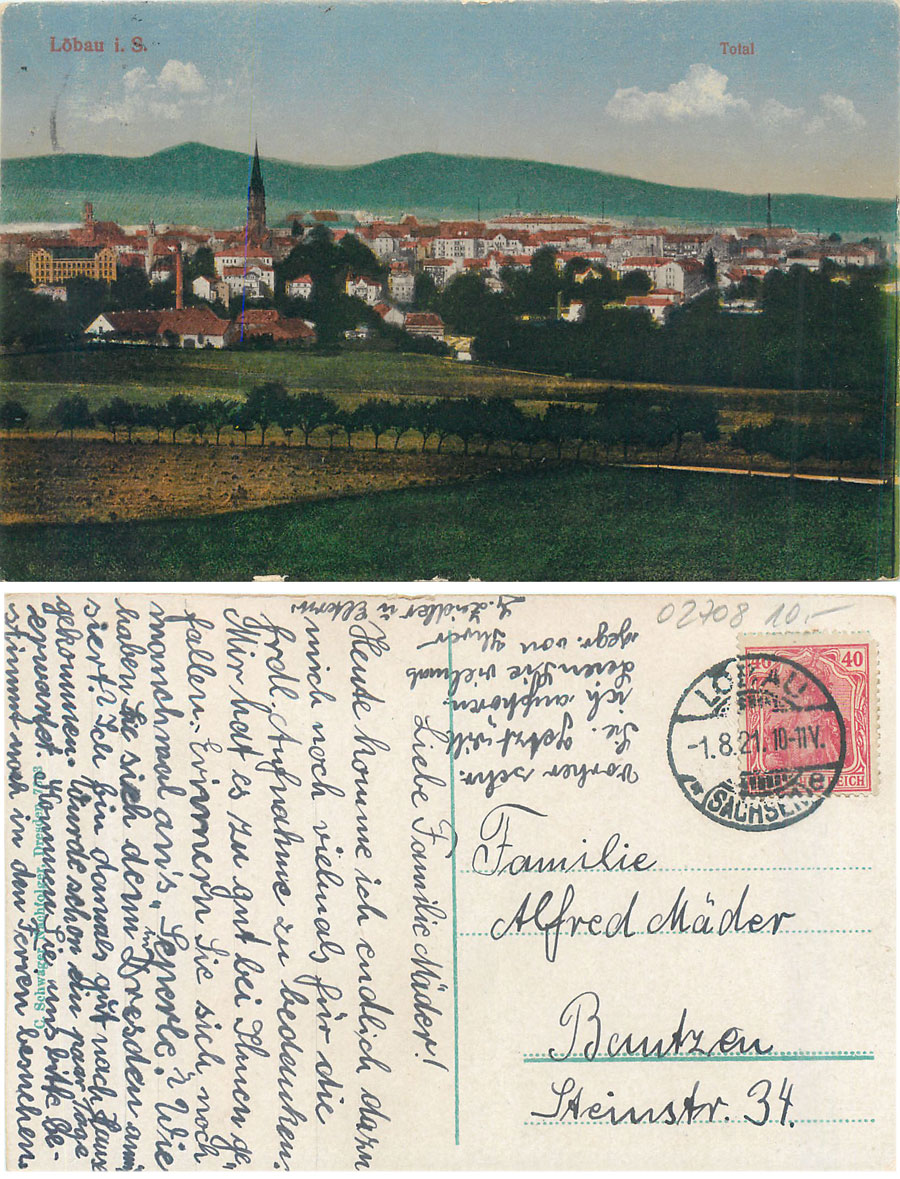 Löbau i. S.
Total
02708 10.-
40 40
LÖBAU
-1.8.21. 10-11V.
(SACHSEN)
REICH
Familie
Alfred Mäder
Bautzen
Steinstr. 34.
C. Schwager Nachfolger, Dresden
Liebe Familie Mäder!
Heute komme ich endlich dazu
mich noch vielmals für die
frdl. Aufnahme zu bedanken.
Mir hat es zu gut bei Ihnen ge-
fallen. Erinnern Sie sich noch
manchmal an's
haben Sie sich denn in Dresden amü-
siert? Ich bin damals gut nach Hause
gekommen, wurde schon ein paar Tage
erwartet. Kommen Sie uns bitte be-
stimmt mal in den Ferien besuchen.
vorher sehr.
Sie. Jetzt will
ich aufhören
seien Sie vielmals
gegr. von Ihrer
u Eltern